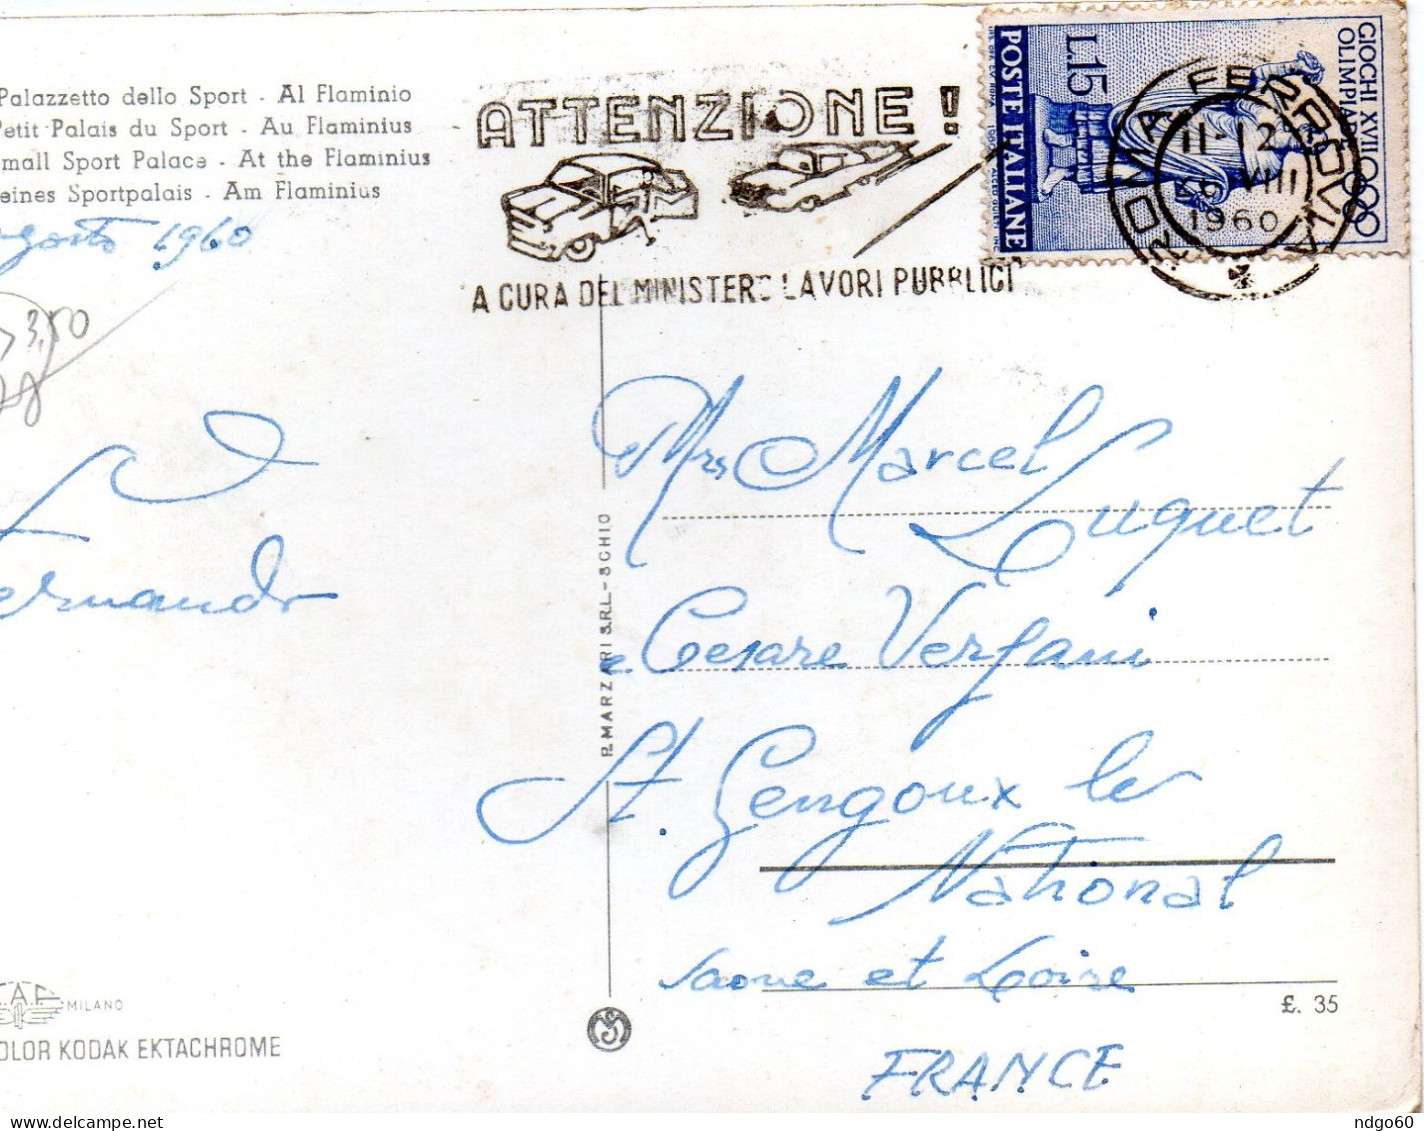 Palazzetto dello Sport - Al Flaminio
Petit Palais du Sport - Au Flaminius
mall Sport Palace - At the Flaminius
eines Sportpalais - Am Flaminius
agosto 1960
3,50
Fernando
MILANO
OLOR KODAK EKTACHROME
ATTENZIONE !
A CURA DEL MINISTERO LAVORI PUBBLICI
GIOCHI XVII
OLIMPIADE
L.15
POSTE ITALIANE
ROMA FERROVIA
11-12
VIII
1960
P. MARZARI S.R.L. - SCHIO
Mrs Marcel
Luquet
e Cesare Verfani
St. Gengoux le
National
Saone et Loire
£. 35
FRANCE
ndgo60